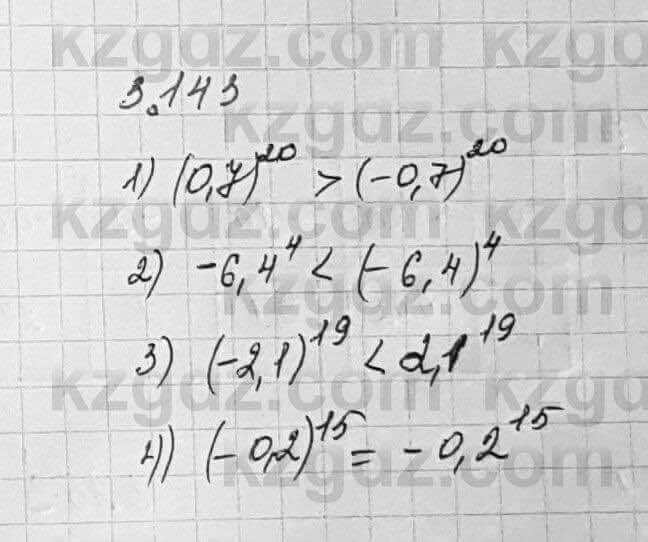 kzgdz.com kzgdz.com
3.143
kzgdz.com
1) (0,7)^20 > (-0,7)^20
kzgdz.com kzgdz.com
2) -6,4^4 < (-6,4)^4
kzgdz.com
3) (-2,1)^19 < 2,1^19
kzgdz.com kzgdz.com
4) (-0,2)^15 = -0,2^15
kzgdz.com